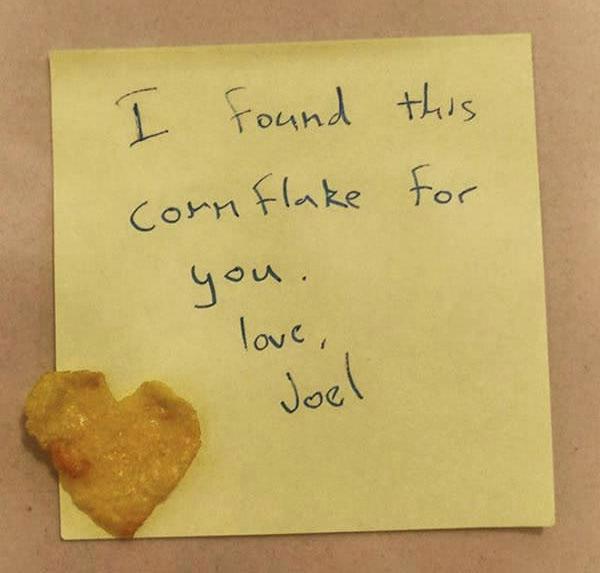 I found this
cornflake for
you.
love,
Joel